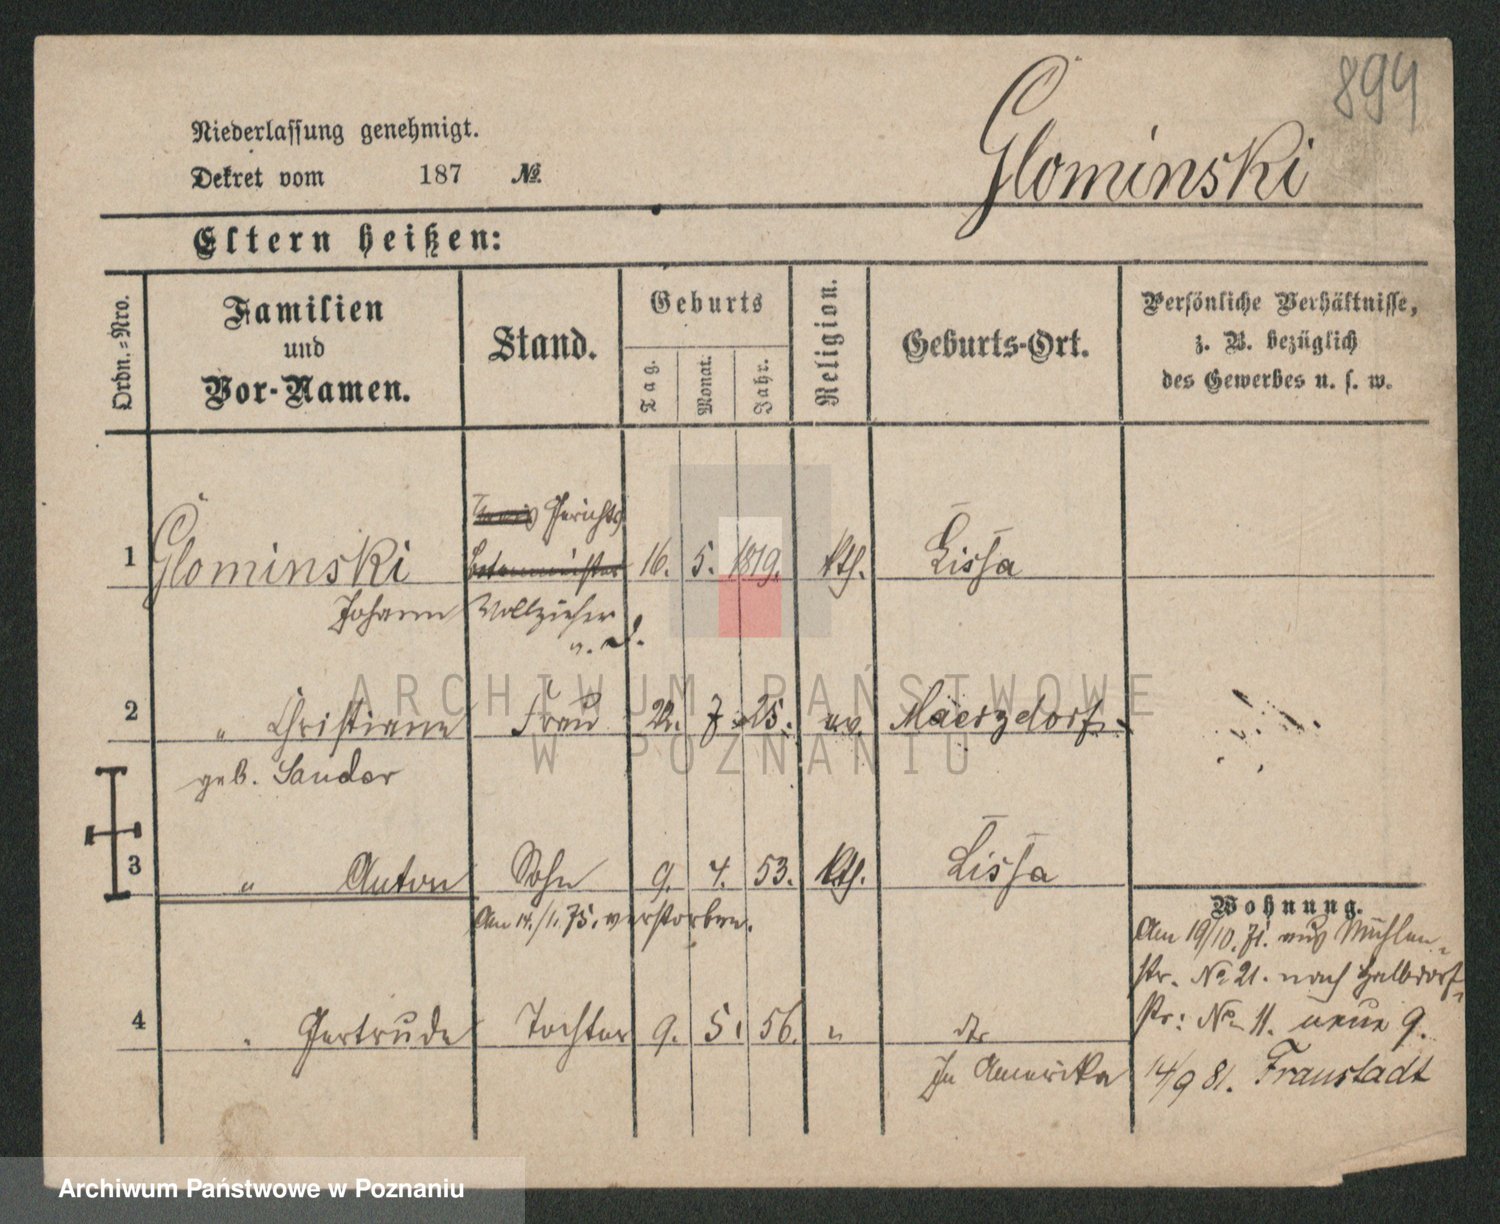 894
Glominski
Niederlassung genehmigt.
Dekret vom 187 №
Eltern heißen:
Ordn.-Nro.
Familien
und
Vor-Namen.
Stand.
Geburts
Tag.
Monat.
Jahr.
Religion.
Geburts-Ort.
Persönliche Verhältnisse,
z. B. bezüglich
des Gewerbes u. s. w.
Gerichts
1 Glominski 16. 5. 1819. kth. Lissa
Johann Vollzieher
a. D.
2 " Christiane Frau 22. 7. 25. ev. Maerzdorf
geb. Sander
3 " Anton Sohn 9. 4. 53. kth. Lissa
Am 14./1. 75. verstorben.
Wohnung.
Am 19/10. 71. aus Mühlen-
str. No 21. nach Halbdorf-
str: No 11. neue 9.
4 " Gertrude Tochter 9. 5. 56. " dto
In Amerika
14/9 81. Fraustadt
ARCHIWUM PAŃSTWOWE
W POZNANIU
Archiwum Państwowe w Poznaniu